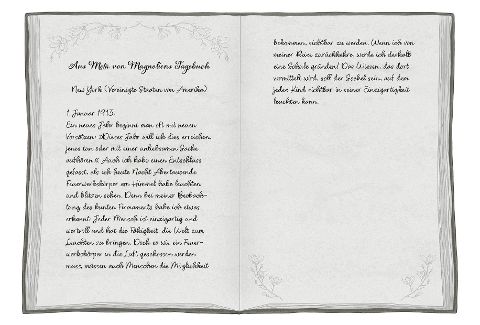 Aus Meta von Magnoliens Tagebuch
New York (Vereinigte Staaten von Amerika)
1. Januar 1913:
Ein neues Jahr beginnt man oft mit neuen
Vorsätzen. »Dieses Jahr will ich dies erreichen,
jenes tun oder mit einer unliebsamen Sache
aufhören.« Auch ich habe einen Entschluss
gefasst, als ich heute Nacht Abertausende
Feuerwerkskörper am Himmel habe leuchten
und blitzen sehen. Denn bei meiner Beobach-
tung des bunten Firmaments habe ich etwas
erkannt: Jeder Mensch ist einzigartig und
wertvoll und hat die Fähigkeit, die Welt zum
Leuchten zu bringen. Doch so wie ein Feuer-
werkskörper in die Luft geschossen werden
muss, müssen auch Menschen die Möglichkeit
bekommen, sichtbar zu werden. Wenn ich von
meiner Reise zurückkehre, werde ich deshalb
eine Schule gründen! Das Wissen, das dort
vermittelt wird, soll der Sockel sein, auf dem
jedes Kind sichtbar in seiner Einzigartigkeit
leuchten kann.